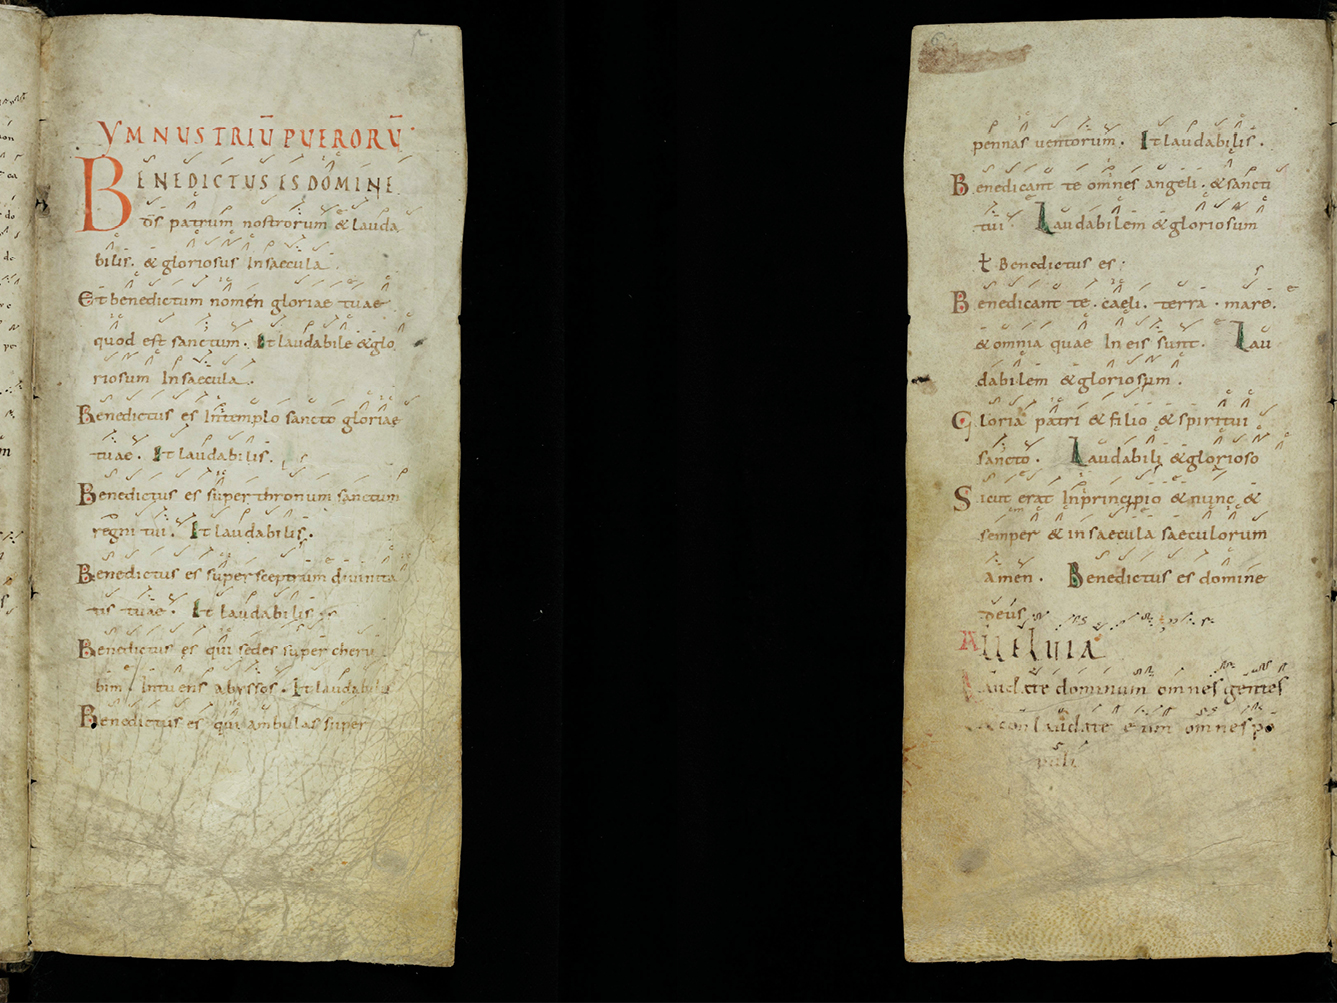 YMNUS TRIŪ PUERORŪ
BENEDICTUS ES DOMINE
d̄s patrum nostrorum & lauda
bilis. & gloriosus In saecula.
Et benedictum nomen gloriae tuae
quod est sanctum. Et laudabile & glo
riosum In saecula.
Benedictus es In templo sancto gloriae
tuae. Et laudabilis.
Benedictus es super thronum sanctum
regni tui. Et laudabilis.
Benedictus es super sceptrum divinita
tis tuae. Et laudabilis
Benedictus es qui sedes super cheru
bim. Intuens abyssos. Et laudabilis
Benedictus es qui ambulas super
pennas ventorum. Et laudabilis.
Benedicant te omnes angeli. & sancti
tui. Laudabilem & gloriosum
Benedictus es
Benedicant te. caeli. terra. mare.
& omnia quae In eis sunt. Lau
dabilem & gloriosum.
Gloria patri & filio & spiritui
sancto. Laudabili & glorioso
Sicut erat In principio & nunc &
semper & in saecula saeculorum
amen. Benedictus es domine
deus
Alleluia
Laudate dominum omnes gentes
& conlaudate eum omnes po
puli